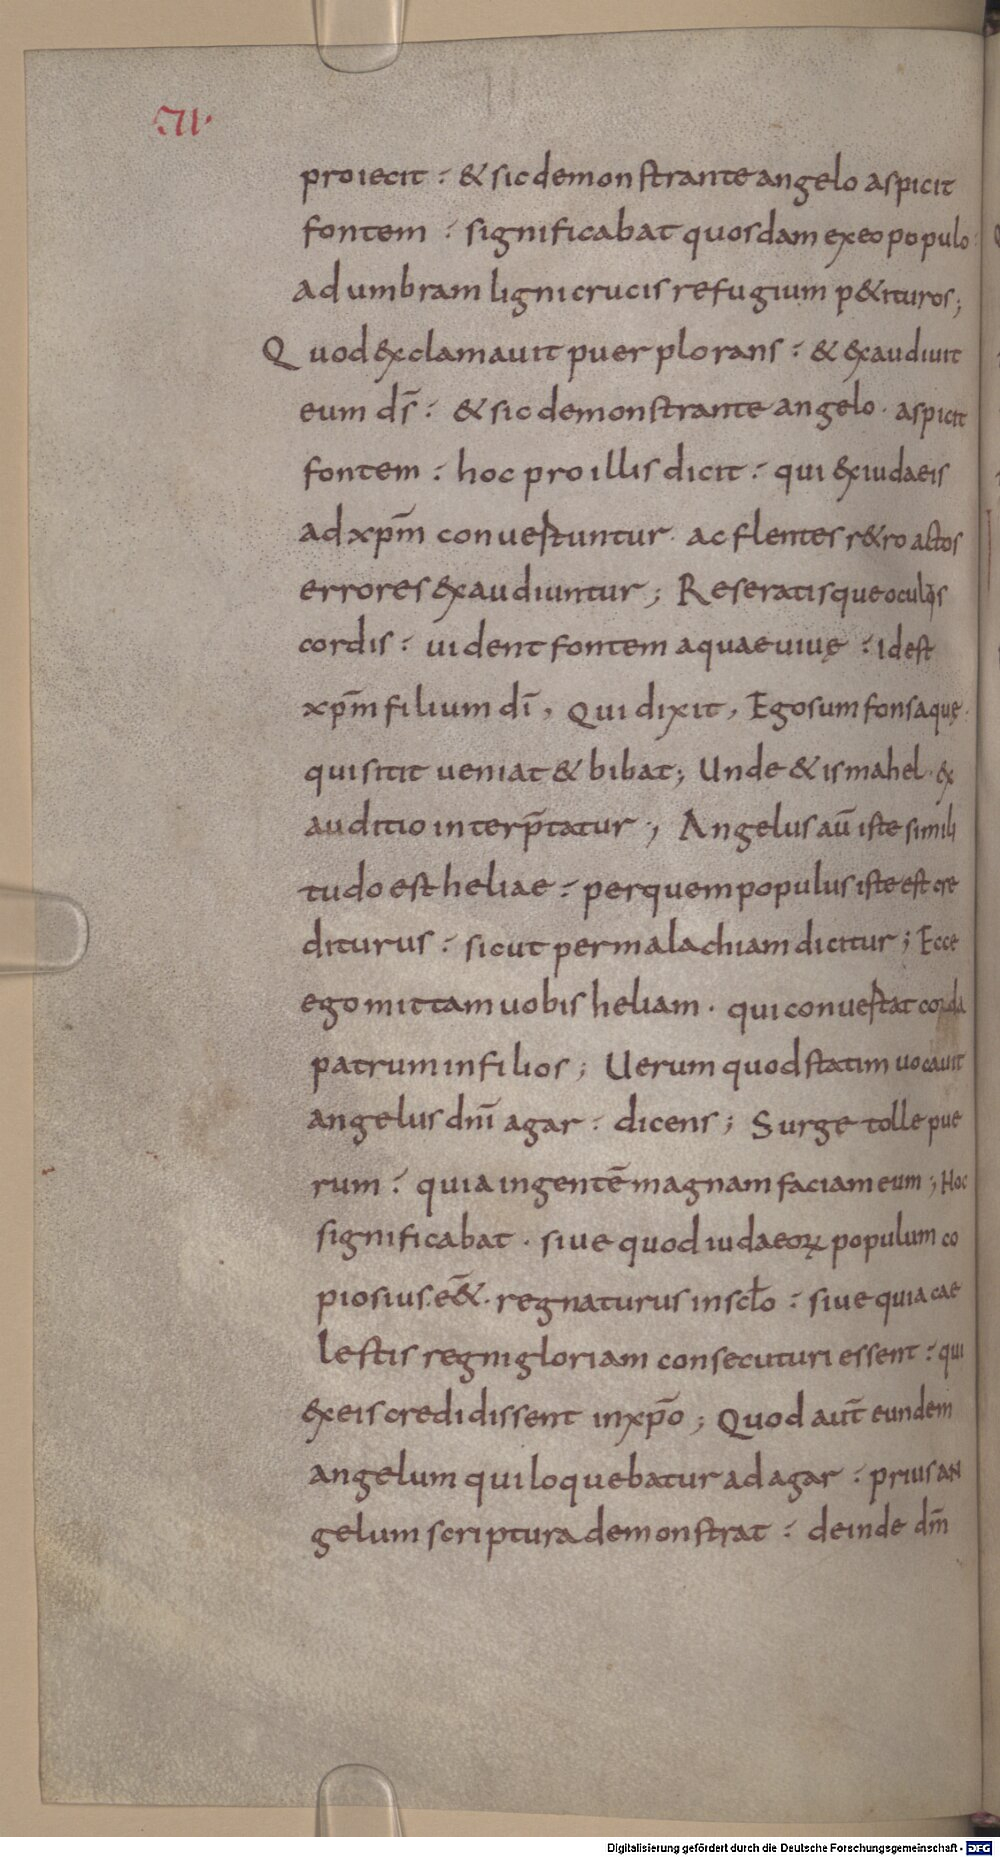 VI·
proiecit : & sic demonstrante angelo aspicit
fontem : significabat quosdam ex eo populo
ad umbram ligni crucis refugium p&ituros ;
Quod exclamauit puer plorans : & exaudiuit
eum ds̄ : & sic demonstrante angelo · aspicit
fontem : hoc pro illis dicit : qui ex iudaeis
ad xpm̄ conuertuntur · ac flentes r&ro actos
errores exaudiuntur ; Reseratisque oculis
cordis : uident fontem aquae uiuę : Id est
xpm̄ filium dī , Qui dixit , Ego sum fons aquę ·
qui sitit ueniat & bibat ; Unde & ismahel · ex
auditio interp̄tatur ; Angelus aū iste simili
tudo est heliae : per quem populus iste est cre
diturus : sicut per malachiam dicitur ; Ecce
ego mittam uobis heliam · qui conuertat corda
patrum in filios ; Uerum quod statim uocauit
angelus dnī agar : dicens ; Surge tolle pue
rum : quia in gentē magnam faciam eum ; Hoc
significabat · siue quod iudaeoꝝ populum co
piosius · eēt · regnaturus in sclo : siue quia cae
lestis regni gloriam consecuturi essent : qui
ex eis credidissent in xpō ; Quod aut̄ eundem
angelum qui loquebatur ad agar : prius an
gelum scriptura demonstrat : deinde dm̄
Digitalisierung gefördert durch die Deutsche Forschungsgemeinschaft - DFG